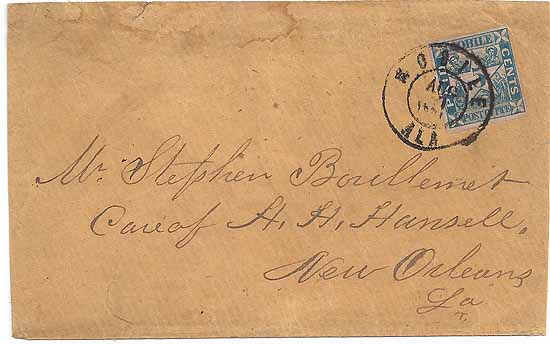 MOBILE
CENTS
POST OFFICE
MOBILE
AUG
ALA
Mr. Stephen Boullemet
Care of H. H. Hansell,
New Orleans
La